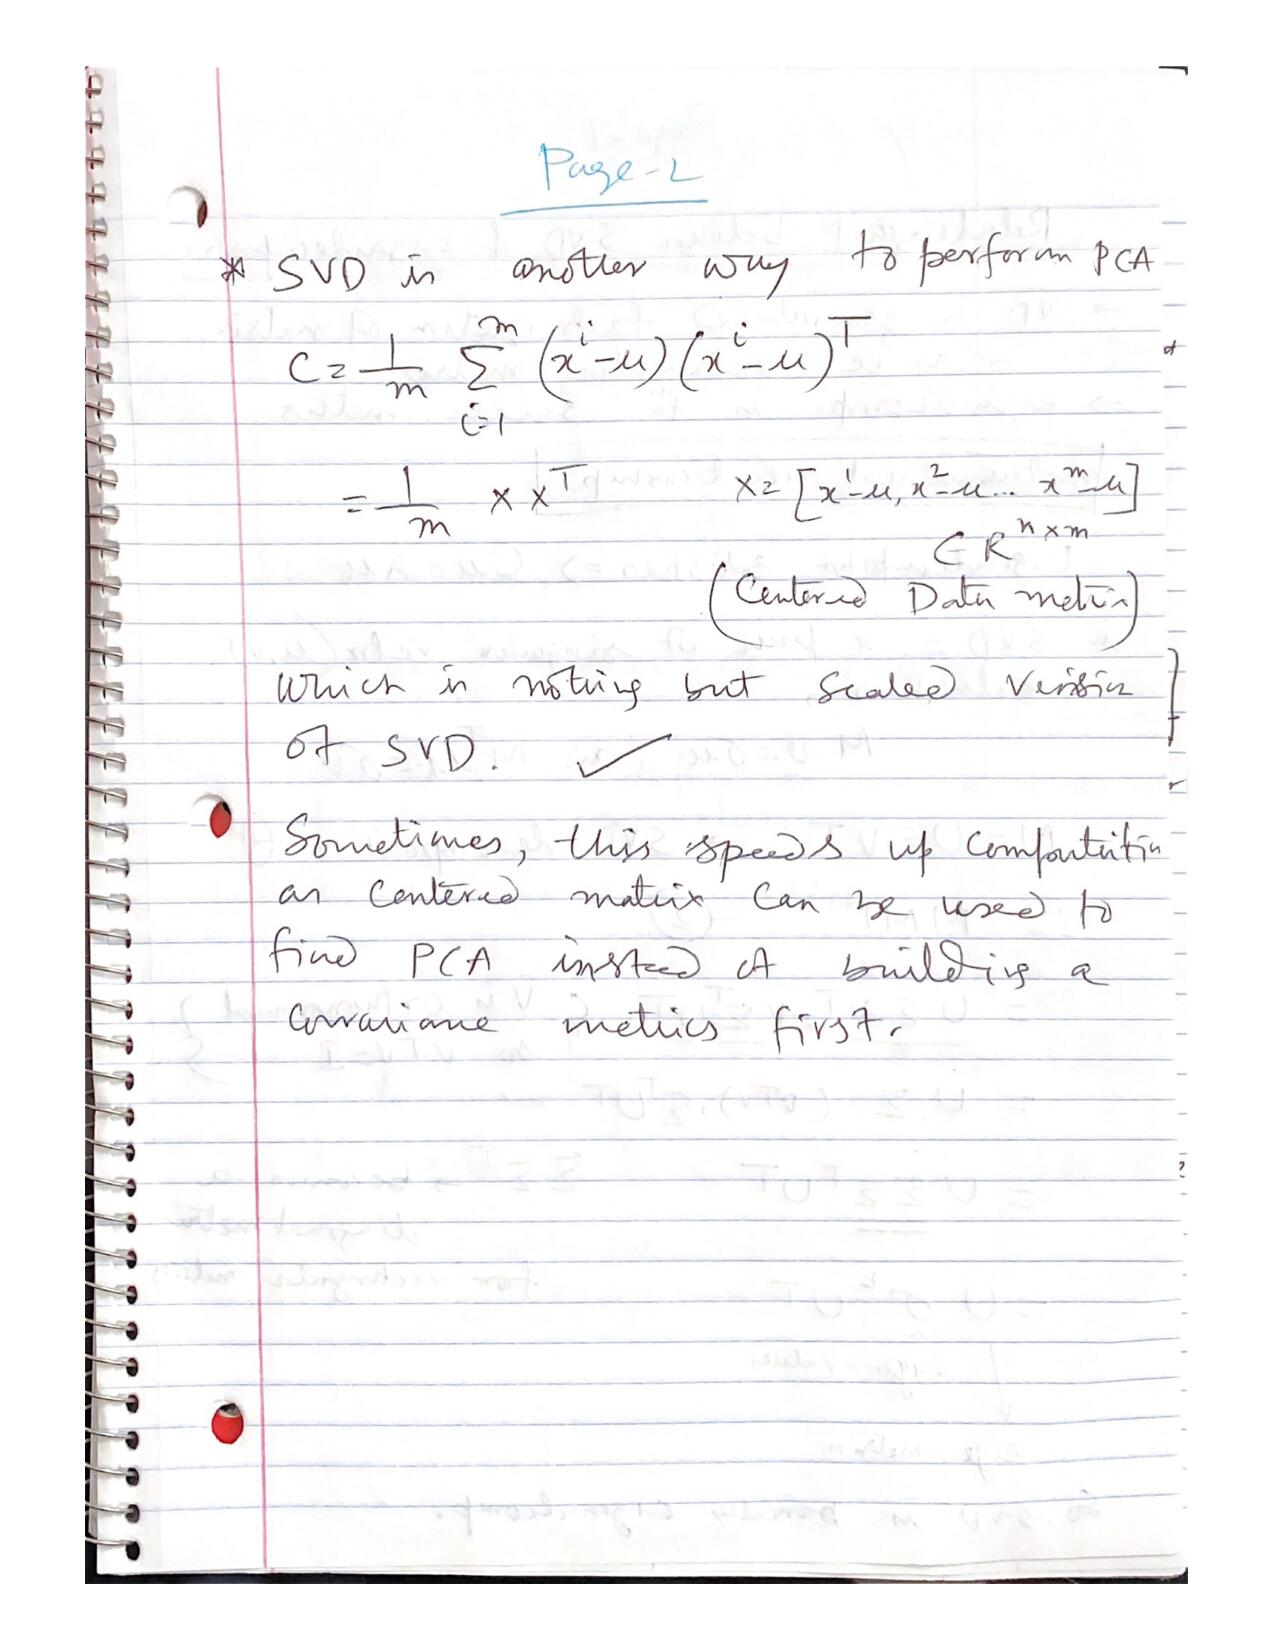 Page-2
* SVD is another way to perform PCA
C = 1/m Σ_{i=1}^{m} (x^i - μ) (x^i - μ)^T
= 1/m X X^T X = [x^1-μ, x^2-μ ... x^m-μ]
∈ R^{n×m}
(Centered Data metrix)
which is nothing but scaled version
of SVD. ✓
Sometimes, this speeds up computation
as centered matrix can be used to
find PCA instead of building a
covariance metrics first.